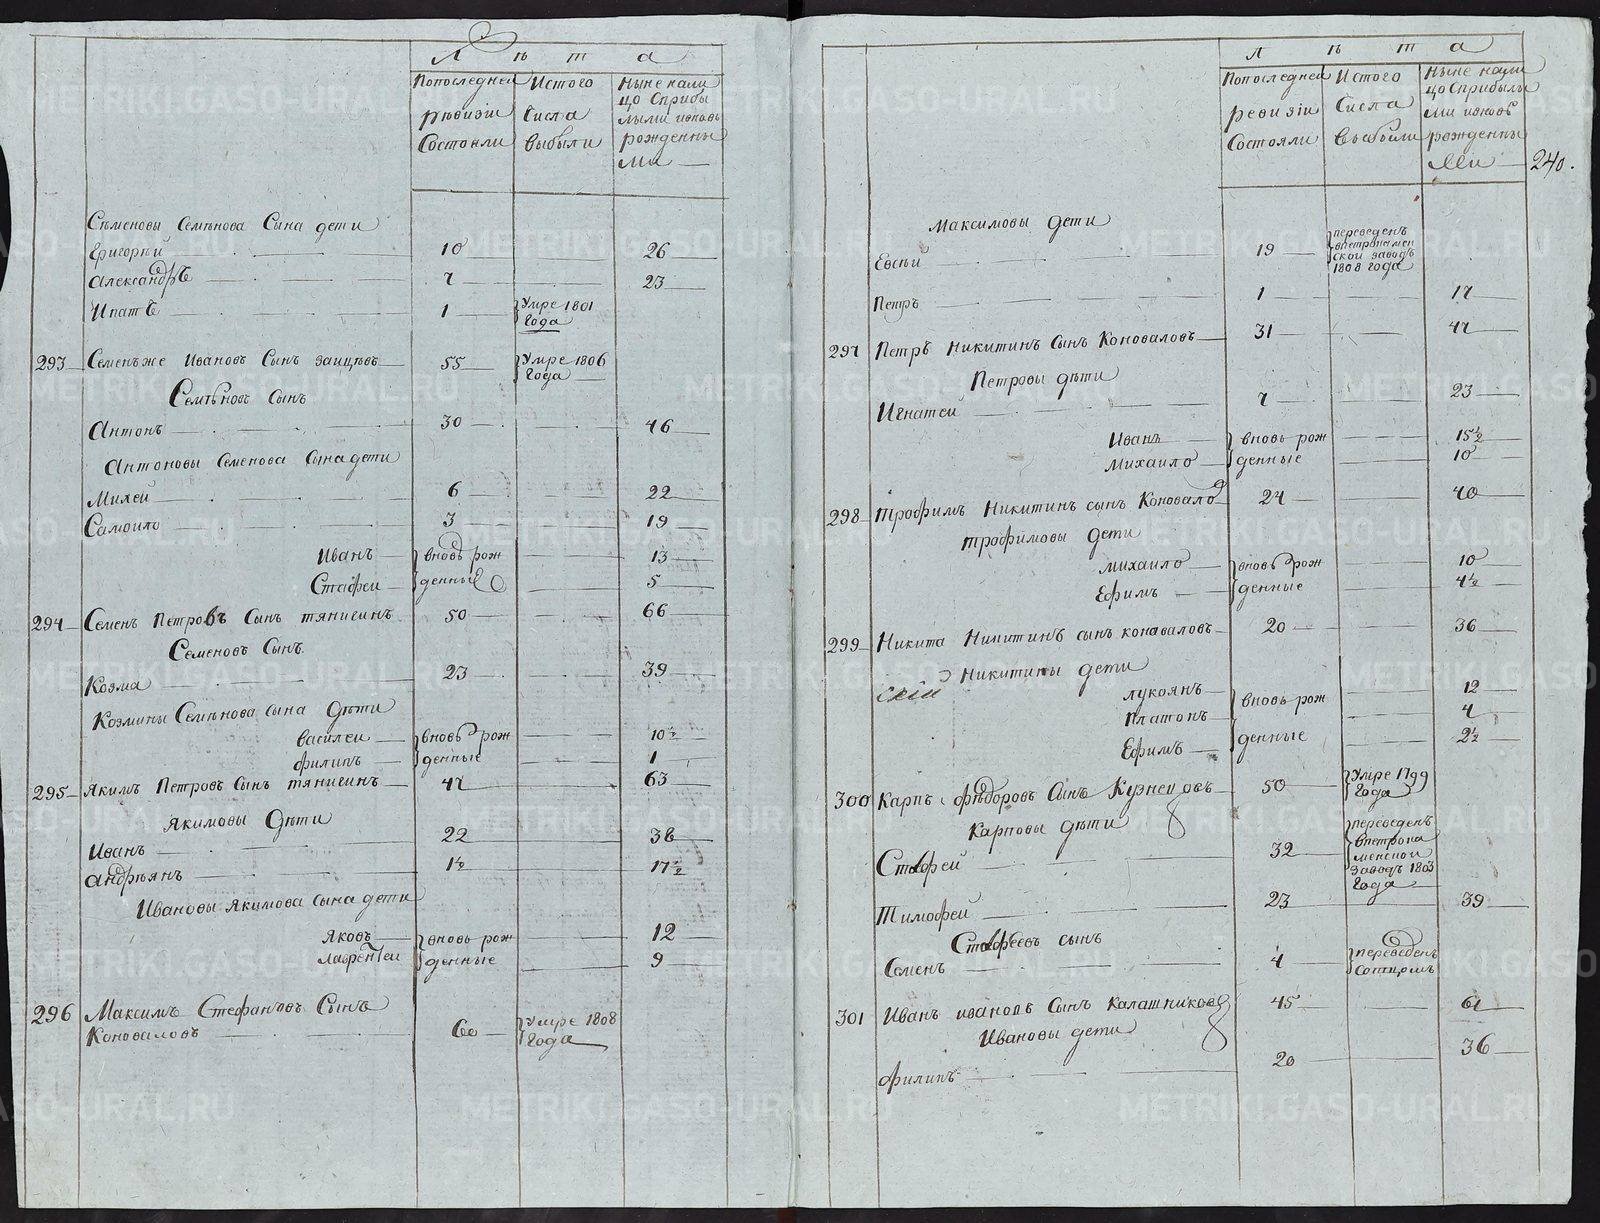 Лѣта
Попоследней ревизіи Состояли
Истого Числа выбыли
Ныне нали цо Сприбы лыми ивновь рожденны ми
Семеновы Семѣнова Сына дети
Григорѣй 10 26
Александръ 7 23
Ипатъ 1 Умре 1801 Года
293 Семенъже Ивановъ Сынъ заицовъ 55 Умре 1806 Года
Семѣновъ Сынъ
Антонъ 30 46
Антоновы Семенова Сына дети
Михей 6 22
Самоило 3 19
Иванъ вновь рож 13
Стафеи денные 5
294 Семенъ Петровъ Сынъ тянигинъ 50 66
Семеновъ Сынъ
Козма 23 39
Козмины Семѣнова сына дѣти
василеи вновь рож 10½
филипъ денные 1
295 Якимъ Петровъ Сынъ тянигинъ 47 63
Якимовы дѣти
Иванъ 22 38
андрѣянъ 1½ 17½
Ивановы Якимова сына дети
Яковъ вновь рож 12
лаврентеи денные 9
296 Максимъ Стефановъ Сынъ
Коноваловъ 60 Умре 1808 Года
Лѣта
240.
Попоследней ревизіи Состояли
Истого Числа выбыли
Ныне нали цо Сприбылы ми ивновь рожденны ми
Максимовы дети
Евсѣй 19 переведенъ впетрокамен ской заводъ 1808 года
Петръ 1 17
297 Петръ Никитинъ Сынъ Коноваловъ 31 47
Петровы дѣти
Игнатей 7 23
Иванъ вновь рож 15½
михаило денные 10
298 Трофимъ Никитинъ сынъ Коновало 24 40
трофимовы дети
михаило вновь рож 10
Ефимъ денные 4½
299 Никита Никитинъ сынъ коноваловъ 20 36
Никитины дети
скіи
лукоянъ вновь рож 12
платонъ 4
Ефимъ денные 2½
300 Карпъ фѣдоровъ Сынъ Кузнецовъ 50 Умре 1799 Года
Карповы дѣти
Стафей 32 переведенъ впетрока менской заводъ 1803 Года
Тимофей 23 39
Стафеевъ сынъ
Семенъ 4 переведенъ сотцомъ
301 Иванъ ивановъ Сынъ Калашниковъ 45 61
Ивановы дети
филипъ 20 36
METRIKI.GASO-URAL.RU